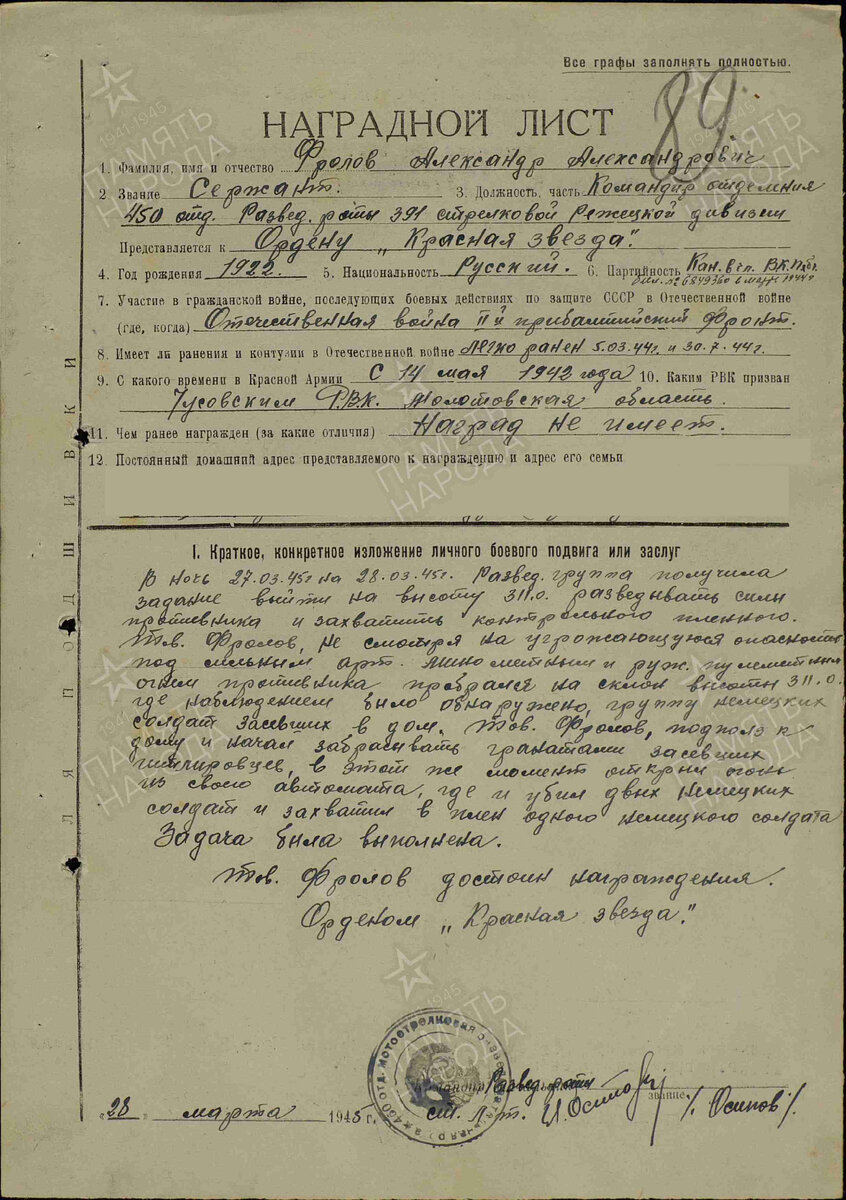 Все графы заполнять полностью.
89
НАГРАДНОЙ ЛИСТ
1. Фамилия, имя и отчество Фролов Александр Александрович
2 Звание Сержант. 3. Должность, часть Командир отделения
450 отд. Развед. роты 391 стрелковой Режецкой дивизии
Представляется к Ордену „Красная звезда".
4. Год рождения 1922. 5. Национальность Русский. 6. Партийность Кан. в чл. ВКП(б)
бил. № 6849360 в март 1944 г
7. Участие в гражданской войне, последующих боевых действиях по защите СССР в Отечественной войне
(где, когда) Отечественная война IIй прибалтийский Фронт.
8. Имеет ли ранения и контузии в Отечественной войне легко ранен 5.03.44г. и 30.7.44г.
9. С какого времени в Красной Армии С 14 мая 1942 года 10. Каким РВК призван
Чусовским РВК. Молотовская область.
11. Чем ранее награжден (за какие отличия) Наград не имеет.
12. Постоянный домашний адрес представляемого к награждению и адрес его семьи
ДЛЯ ПОДШИВКИ
I. Краткое, конкретное изложение личного боевого подвига или заслуг
В ночь 27.03.45г на 28.03.45г. Развед. группа получила
задание выйти на высоту 311.0. разведывать силы
противника и захватить контрольного пленного.
Тов. Фролов, не смотря на угрожающуюся опасность
под сильным арт. минометным и руж. пулеметным
огнем противника пробрался на склон высоты 311.0.
где наблюдением было обнаружено, группу немецких
солдат засевших в дом. Тов. Фролов, подполз к
дому и начал забрасывать гранатами засевших
гитлеровцев, в этот же момент открыл огонь
из своего автомата, где и убил двух немецких
солдат и захватил в плен одного немецкого солдата
Задача была выполнена.
Тов. Фролов достоин награждения.
Орденом „Красная звезда".
Командир Развед. роты
28 марта 1945 г. ст. л-т. И. Осипов звание /Осипов/.
ПАМЯТЬ НАРОДА
1941-1945